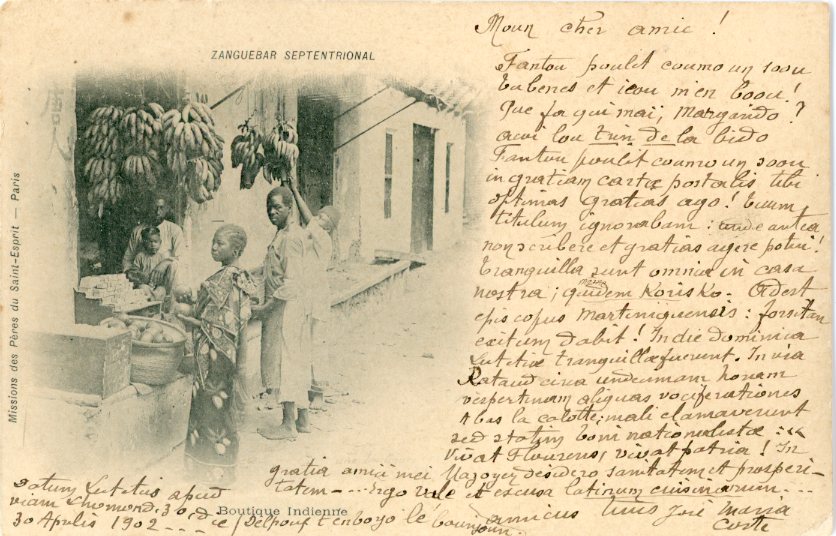 ZANGUEBAR SEPTENTRIONAL
Missions des Pères du Saint-Esprit — Paris
Boutique Indienne
Moun cher amic !
Fantou poulit coumo un soou
et ieou m'en boou !
Que fa qui mai, Margarido ?
lou de la bido
Fantou poulit coumo un soou
in gratiam cartæ postalis tibi
optimas gratias ago ! Tuum
titulum ignorabam : antea
non scribere et gratias agere potui !
Tranquilla sunt omnia in casa
nostra ; quidem Korisko. Adest
episcopus Martiniquensis : forsitan
exitum dabit ! In die dominica
Lutetiæ tranquillæ fuerunt. In via
Rataud circa undecimam horam
vespertinam aliquas vociferationes
A bas la calotte, mali clamaverunt
sed statim boni nationalistæ :
Vivat Flourens, vivat patria ! In
gratia amici mei Mazoyer desidero sanitatem et prosperi-
tatem - ... ergo vale et escusa latinum cuisinarum ...
amicus tuus José Maria
Coste
Datum Lutetiis apud
viam Lhomond, 30, die
30 Aprilis 1902 ....
(Delpouf t'enboyo le bounjoun.